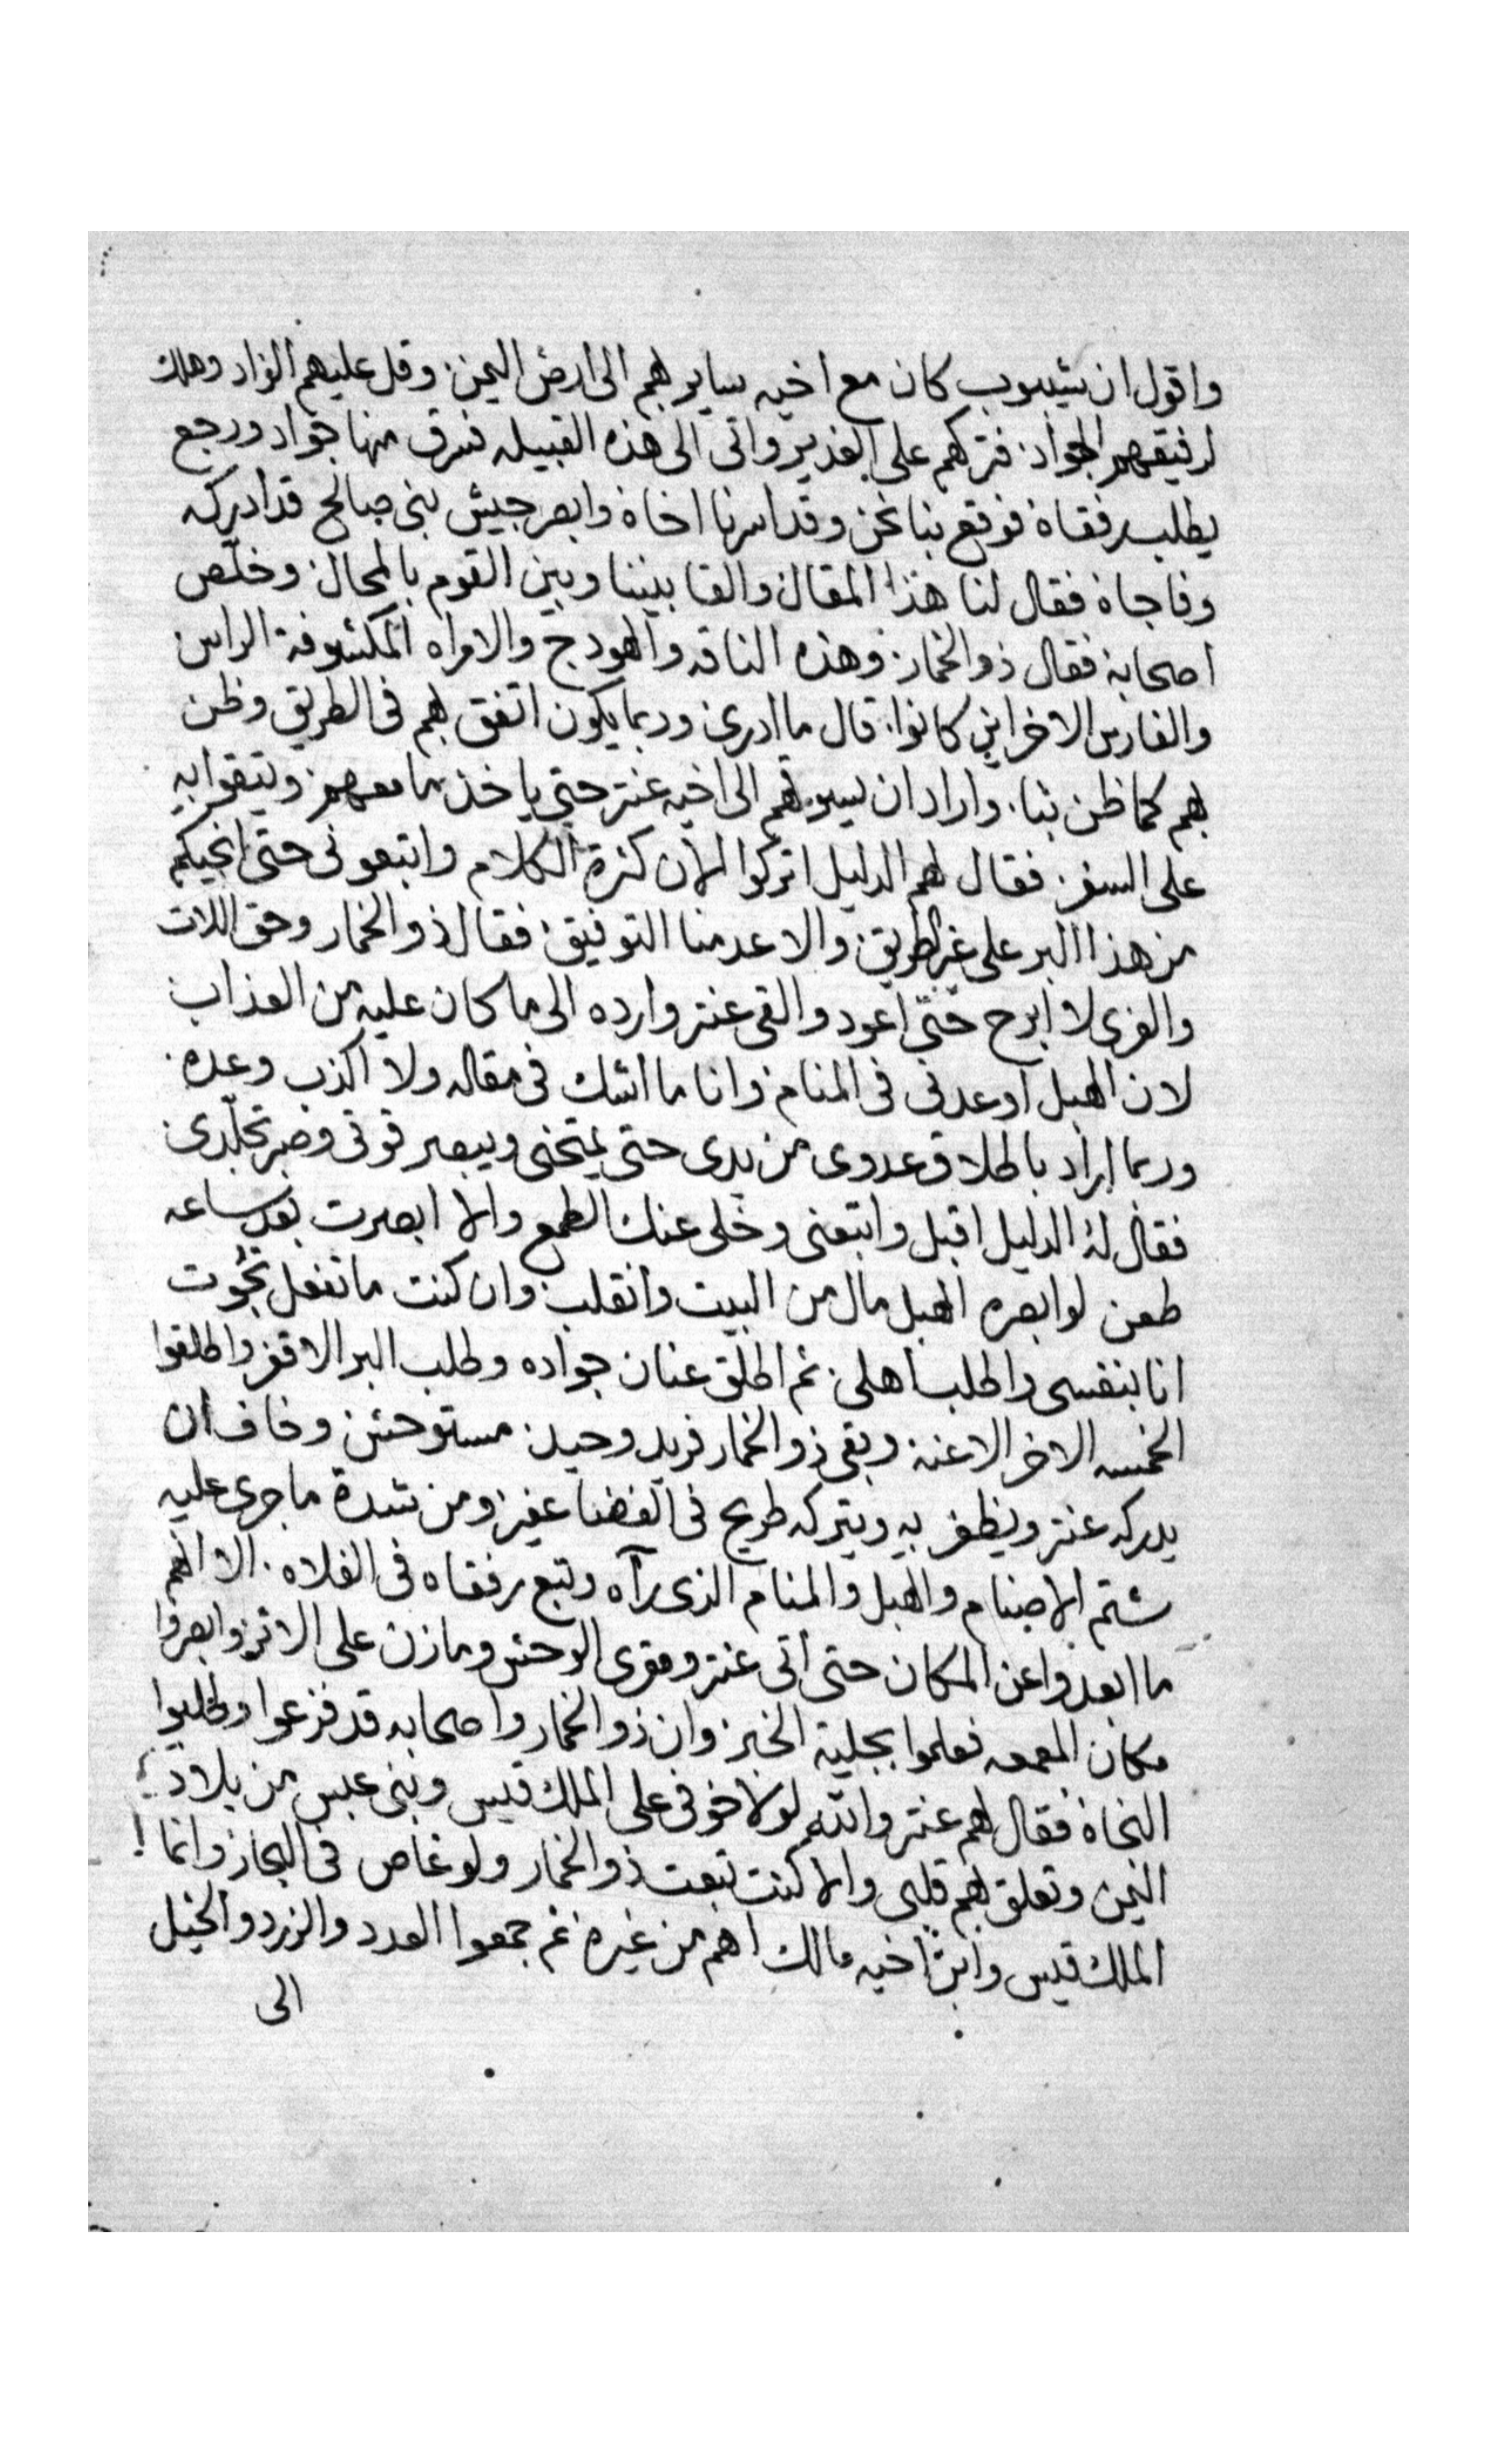 واقول ان شيبوب كان مع اخيه ساير بهم الى ارض اليمن وقل عليهم الزاد وهلك
لرفيقهم الجواد فتركهم على الغدير واتى الى هذه القبيله فسرق منها جواد ورجع
يطلب رفقاة فوقع بنا نحن وقد اسرنا اخاة وابصر جيش بنى صالح قد ادركه
وفاجاة فقال لنا هذا المقال والقا بيننا وبين القوم بالمحال وخلّص
اصحابة فقال ذو الخمار وهذه الناقه والهودج والامراه المكشوفة الراس
والفارس الاخر اين كانوا قال ما ادرى وربما يكون اتفق لهم فى الطريق وظن
بهم كما ظن بنا واراد ان يسير بهم الى اخيه عنتر حتى ياخذ ما معهم ويتقوا به
على السفر فقال لهم الدليل اتركوا الان كثرة الكلام واتبعونى حتى انجيكم
من هذا البر على غير الطريق والا عدمنا التوفيق فقال ذو الخمار وحق اللات
والعزى لا ابرح حتّى اعود والقى عنتر وارده الى ما كان عليه من العذاب
لان الهبل اوعدنى فى المنام وانا ما اشك فى مقاله ولا اكذب وعده
وربما اراد باطلاق عدوى من يدى حتى يمتحنى ويبصر قوتى وصبر تجلّدى
فقال لهُ الدليل اقبل واتبعنى وخلى عنك الطمع والا ابصرت بعد ساعه
طعن لو ابصره الهبل مال من البيت وانقلب وان كنت ما تفعل نجوت
انا بنفسى واطلب اهلى ثم اطلق عنان جواده وطلب البر الاقفر واطلقوا
الخمسه الاخر الاعنة وبقى ذو الخمار فريد وحيد مستوحش وخاف ان
يدركه عنتر ويظفر به ويتركه طريح فى الفضا عفير ومن شدة ما جرى عليه
شتم الاصنام والهبل والمنام الذى رآه وتبع رفقاه فى الفلاه الا انهم
ما ابعدوا عن المكان حتى اتى عنتر ومقرى الوحش ومازن على الاثر وابصروا
مكان المعمعه فعلموا بجلية الخبر وان ذو الخمار واصحابه قد فزعوا وطلبوا
النجاة فقال لهم عنتر والله لولا خوفى على الملك قيس وبنى عبس من بلاد
اليمن وتعلق بهم قلبى والا كنت تبعت ذو الخمار ولو غاص فى البحار وانما
الملك قيس وابن اخيه مالك اهم من غيره ثم جمعوا العدد والزرد والخيل
الى